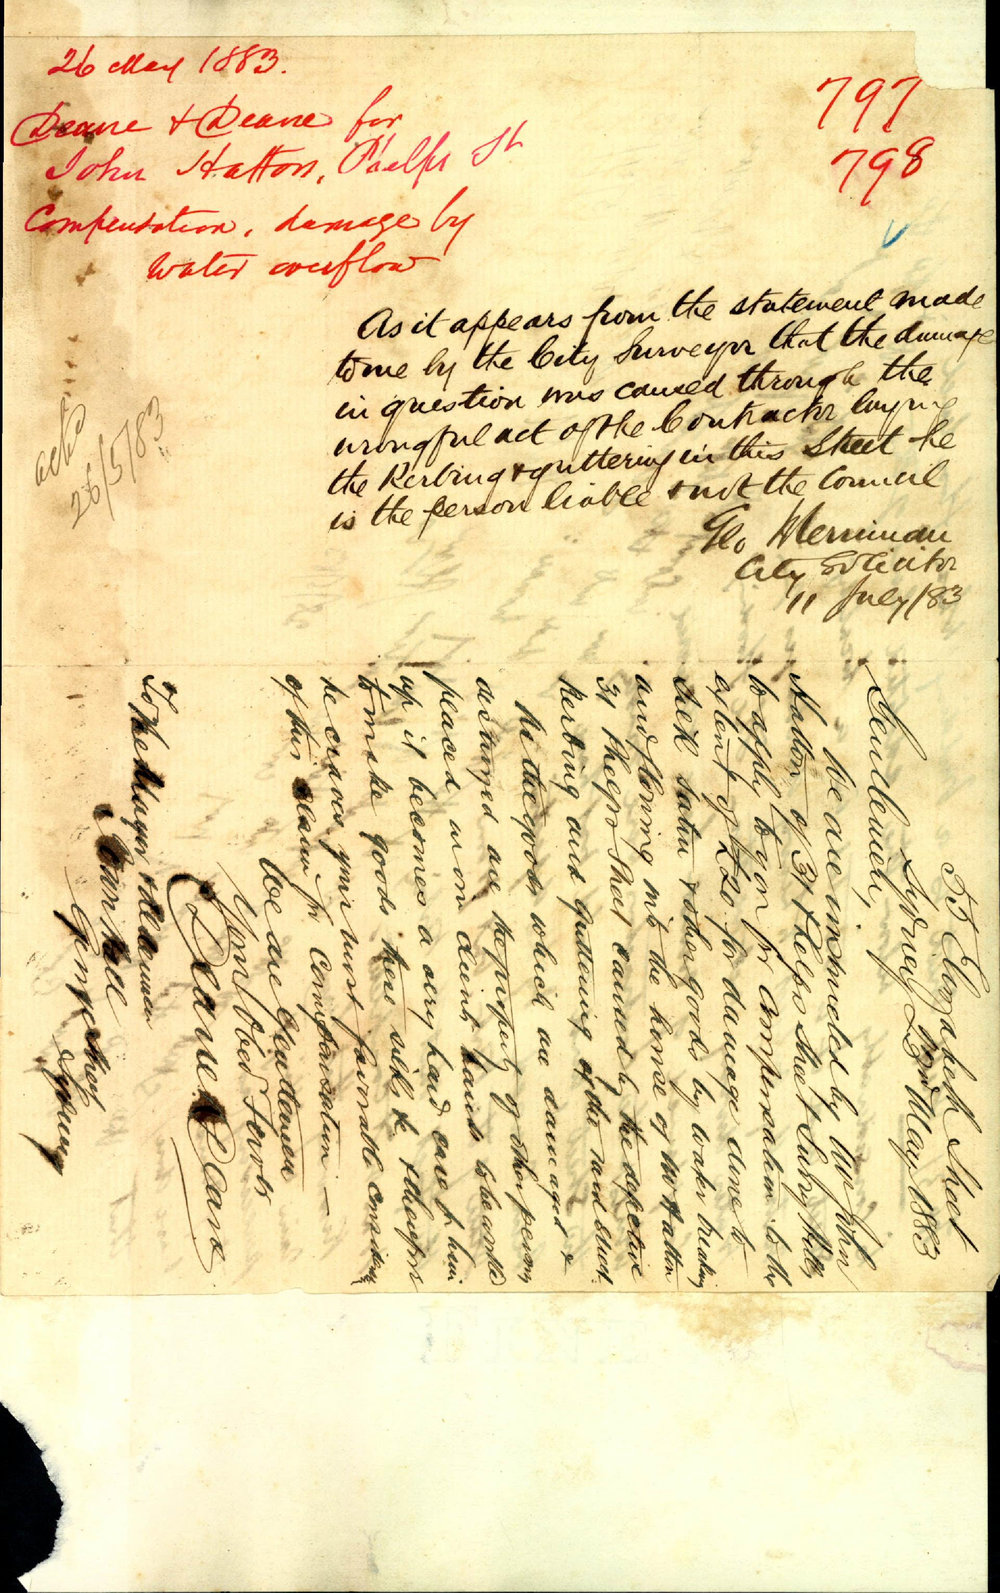 26 May 1883.
Deane & Deane for
John Hatton, Phelps St
Compensation, damage by
water overflow
797
798
ackd
26/5/83
As it appears from the statement made
to me by the City Surveyor that the damage
in question was caused through the
wrongful act of the Contractor laying
the Kerbing & guttering in this Street he
is the person liable & not the Council
Geo Merriman
City Solicitor
11 July/83
Elizabeth Street
Sydney May 1883
Gentlemen,
We are instructed by Mr John
Hatton of 31 Phelps Street Surry Hills
to apply to you for compensation to the
extent of £20 for damage done to
silk satin & other goods by water breaking
and flowing into the house of Mr Hatton
31 Phelps Street caused by the defective
Kerbing and guttering of the said street.
As the goods which are damaged &
destroyed are the property of other persons
placed in our client hands to be worked
up it becomes a very hard case for him
to make goods these silks &c & therefore
he craves your most favorable consideration
of this claim for Compensation —
We are Gentlemen
Your Obed Servts
Deane & Deane
To The Mayor & Aldermen
Town Hall
George Street
Sydney